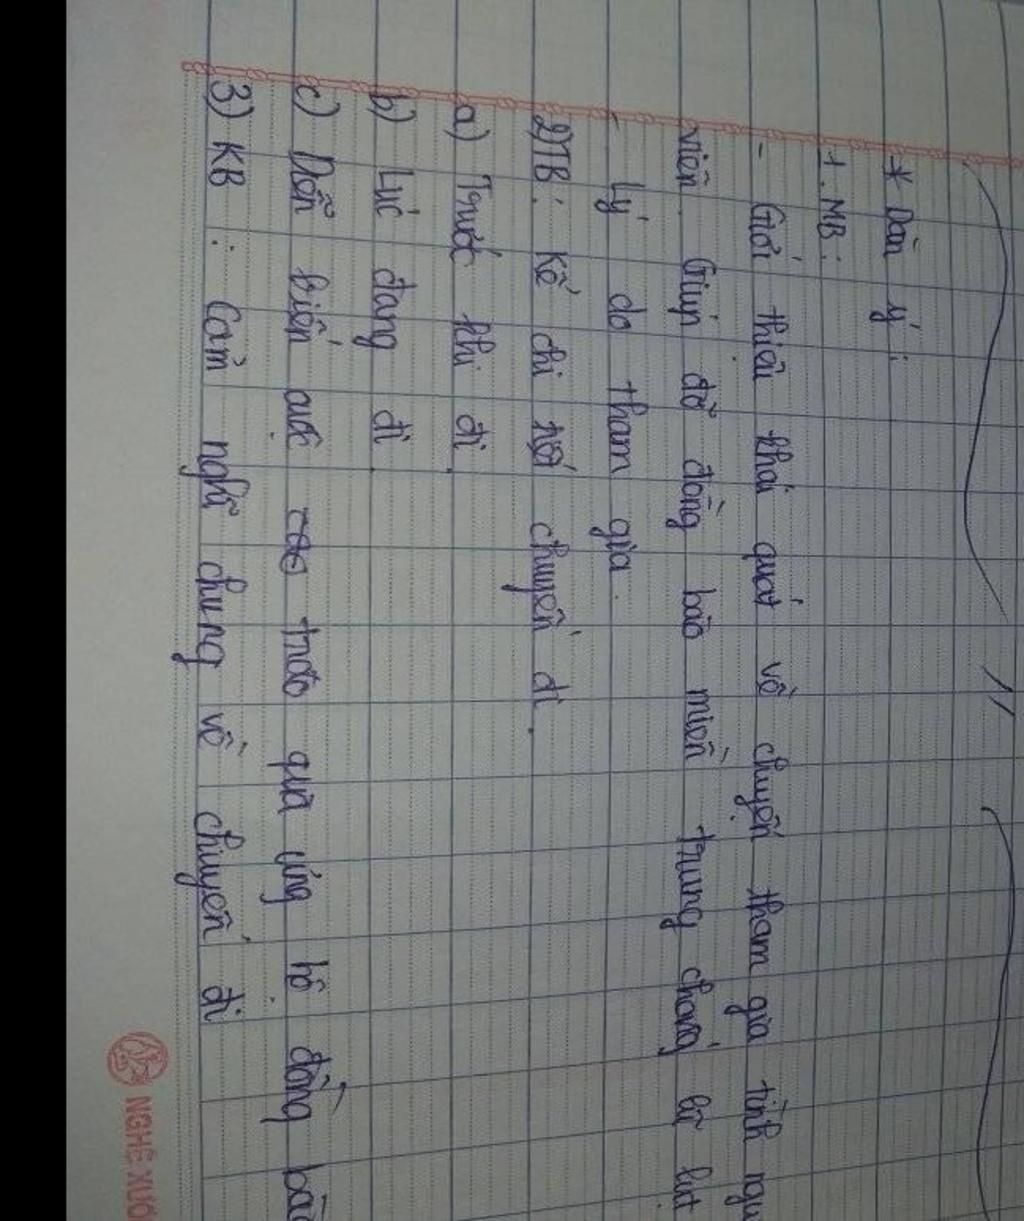 * Dàn ý:
1. MB:
- Giới thiệu khái quát về chuyến tham gia tình ngu
viên. Giúp đỡ đồng bào miền trung chống lũ lụt
- Lý do tham gia.
2) TB: Kể chi tiết chuyến đi.
a) Trước khi đi.
b) Lúc đang đi.
c) Diễn biến cuộc trao quà ủng hộ đồng bào
3) KB: Cảm nghĩ chung về chuyến đi
NGHÉ XƯỞ